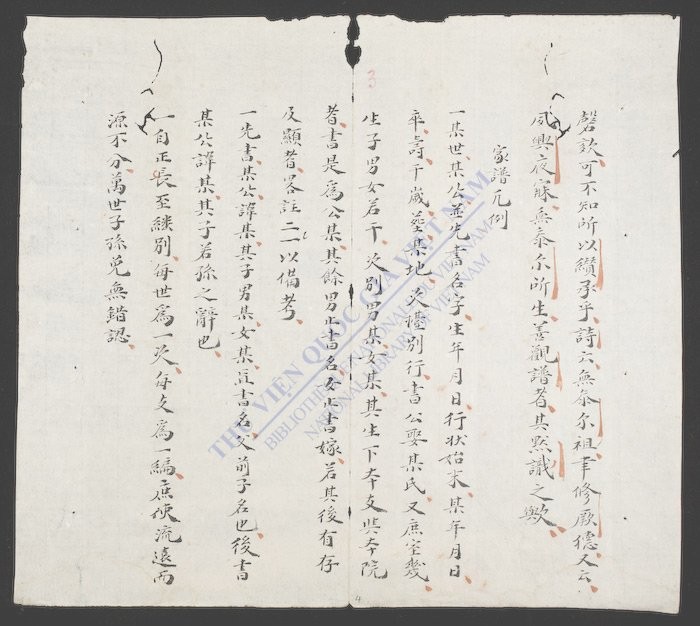 磬欬可不知所以纘承乎詩云無忝尔祖聿修厥德又云
夙興夜寐無忝尔所生善觀譜者其默識之歟
家譜凡例
一某世某公並先書名字生年月日行状始末某年月日
卒壽干歲塟某地次禮別行書公娶某氏又庶室幾
生子男女若干次別男某女某其生下本支與本院
者書是為公某其餘男止書名女止書嫁若其後有存
及顯者畧註一一以備考
一先書某公諱某其子男某女某並書名父前子名也後書
某公諱某其子若孫之辭也
一自正長至継別每世為一次每支為一編庶使流遠而
源不分萬世子孫免無錯認
3
4
THƯ VIỆN QUỐC GIA VIỆT NAM
BIBLIOTHÈQUE NATIONALE DU VIETNAM
NATIONAL LIBRARY OF VIETNAM